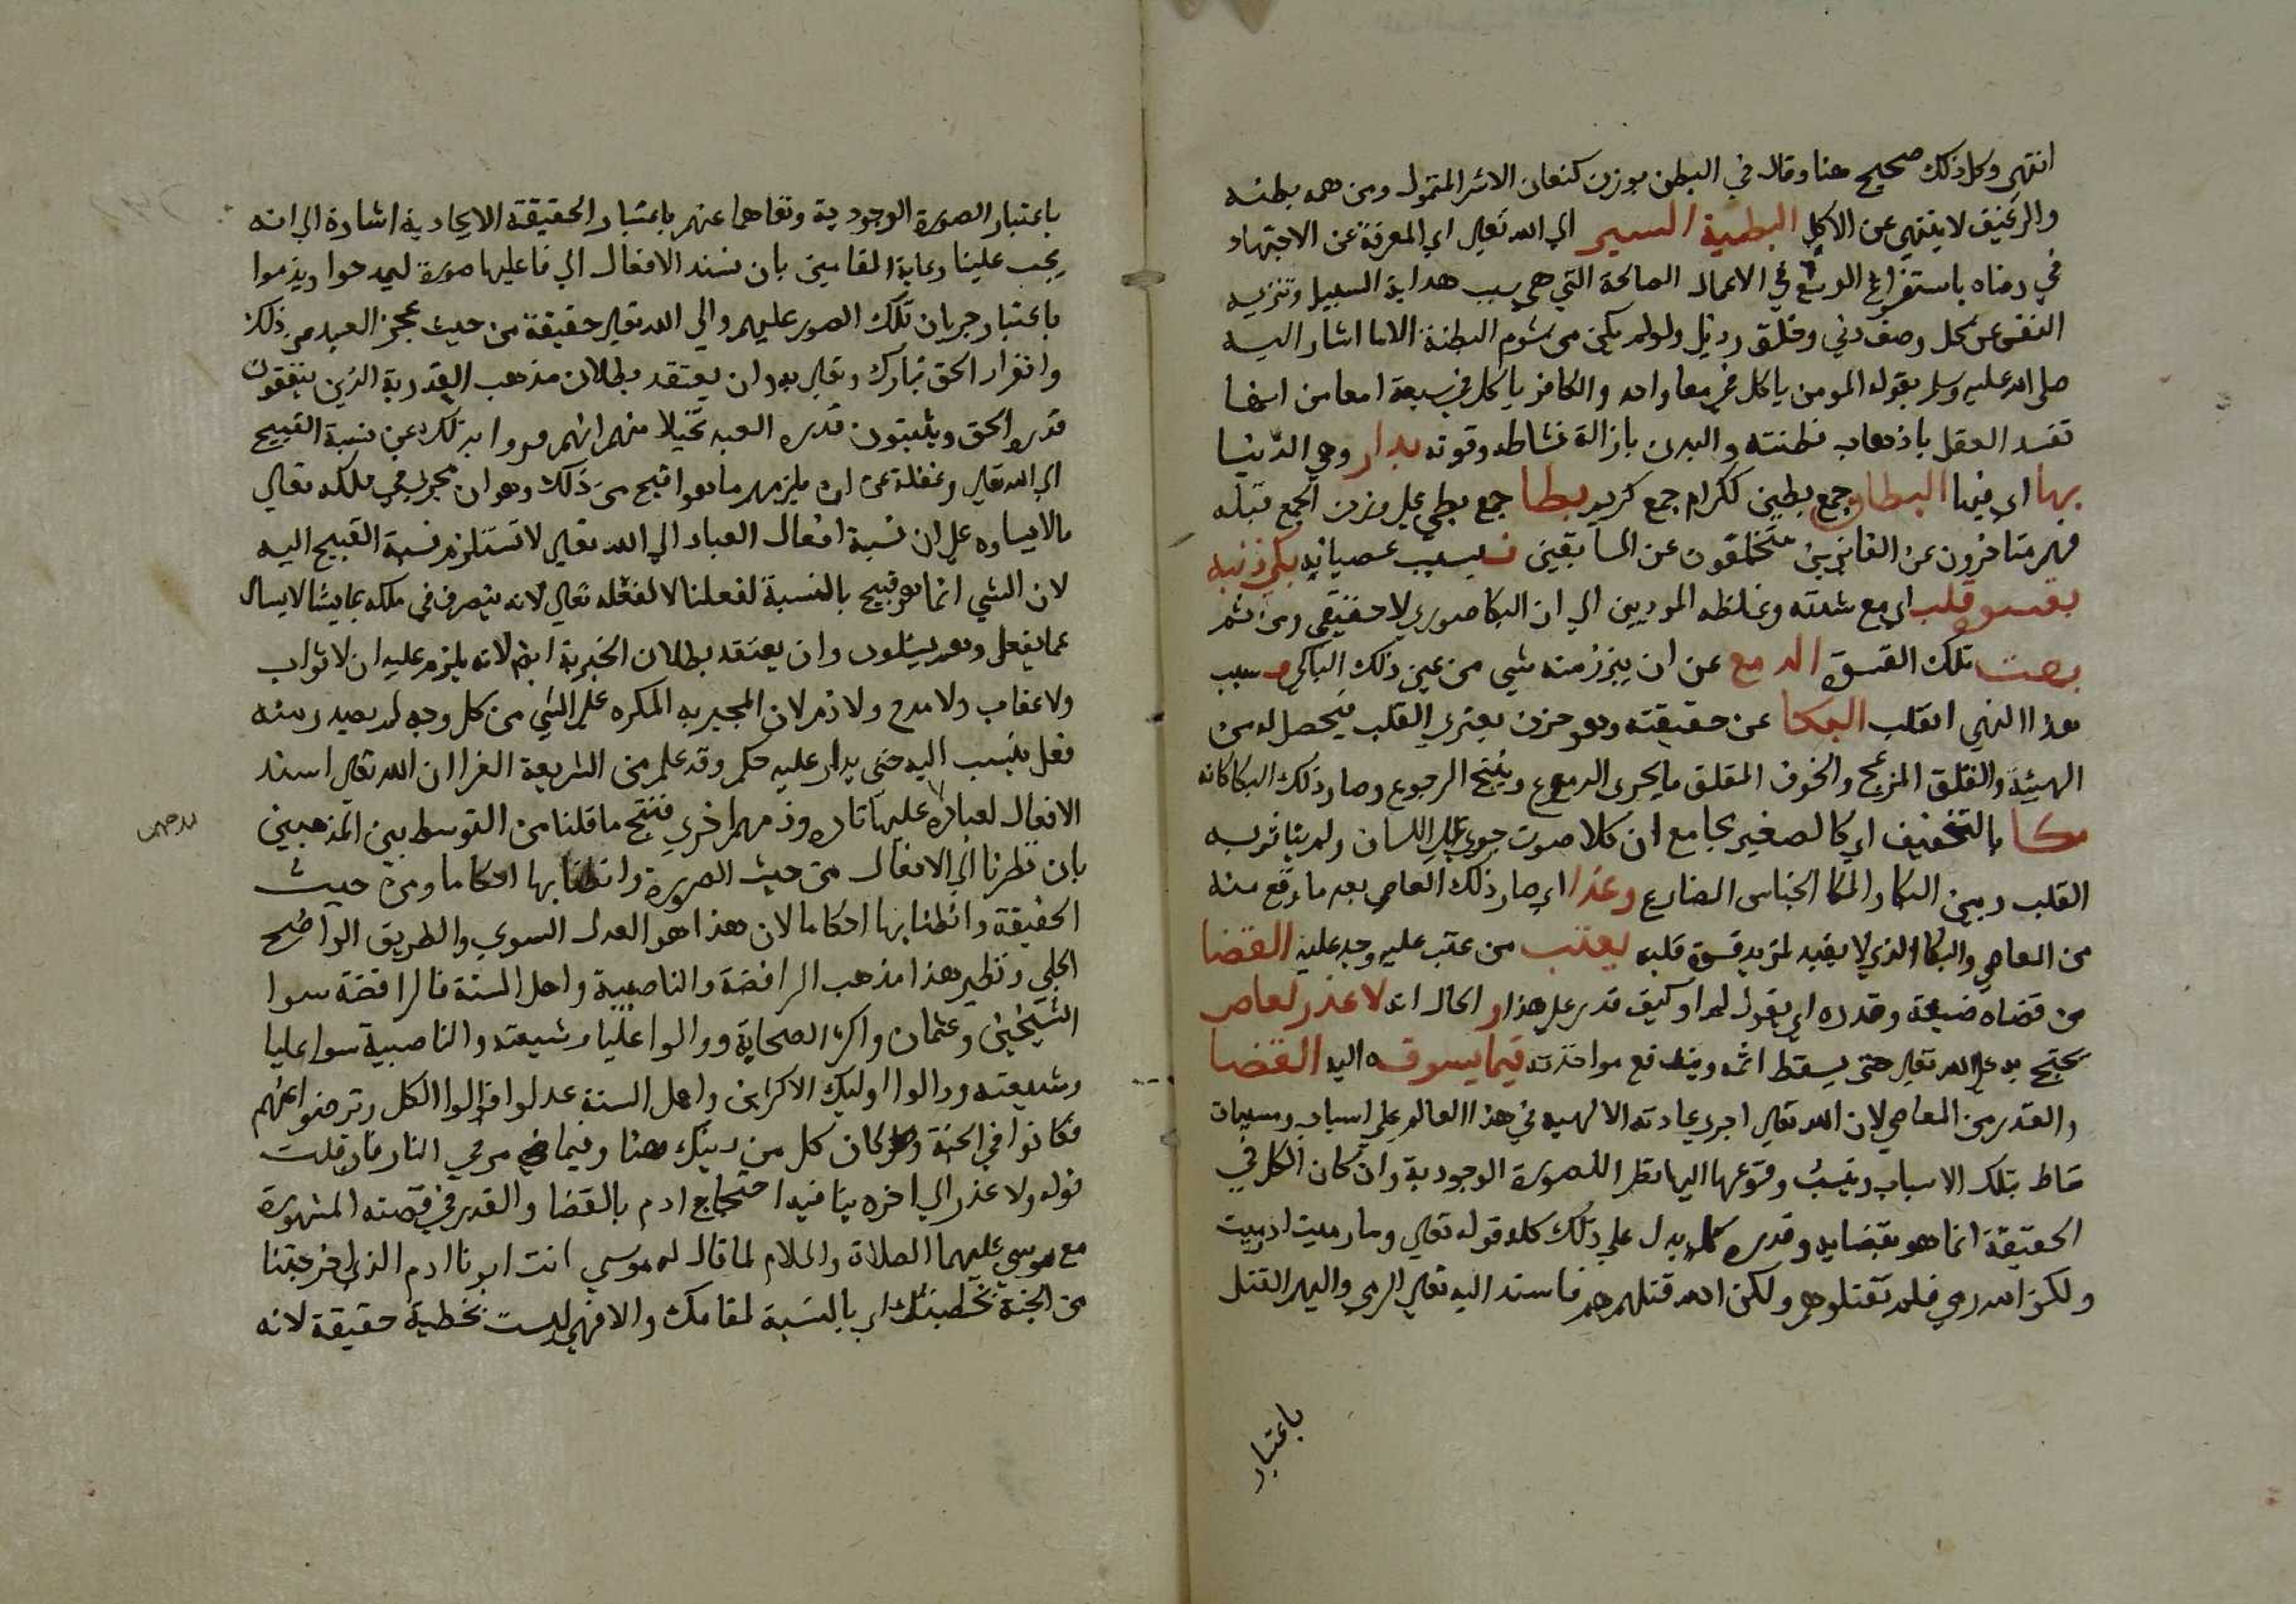 انتهي وكل ذلك صحيح هنا وقال في البطن بوزن كنعان الاشر المتمول ومن همه بطنه
والرغيف لا ينتهي عن الاكل البطية السير الي الله تعالي اي المعرفة عن الاجتهاد
في رضاه باستفراغ الوسع في الاعمال الصالحة التي هي سبب هداية السبيل وتنزيه
النفس عن كل وصف دني وخلق رذيل ولو لم يكن من شوم البطنة الا ما اشار اليه
صلي الله عليه وسلم بقوله المومن ياكل في معا واحد والكافر ياكل في سبعة امعا من انها
تفسد العقل باذهاب فطنته والبدن بازالة نشاطه وقوته بدار وهي الدنيا
بها اي فيها البطان جمع بطين ككرام جمع كريم بطا جمع بطي علي وزن الجمع قبله
فهم متاخرون عن الفايزين متخلفون عن السابقين فبسبب عصيانه بكي ذنبه
بقسو قلب اي مع شدته وغلظه الموديين الي ان البكا صوري لا حقيقي ومن ثم
بصت تلك القسوة الدمع عن ان يبرز منه شي من عين ذلك الباكي وبسبب
هذا النهي انقلب البكا عن حقيقته وهو حزن يعتري القلب فيحصل له من
الهيئة والقلق المزعج والخوف المقلق ما يجري الدموع وينتج الرجوع وصار ذلك البكا كانه
مكا بالتخفيف اي كالصغير بجامع ان كلا صوت جري علي اللسان ولم يتاثر به
القلب وبين البكا والمكا الجناس المضارع وغدا اي صار ذلك العاصي بعد ما وقع منه
من المعاصي والبكا الذي لا يفيد لمزيد قسوة قلبه يعتب من عتب عليه وجد عليه القضا
من قضاه ضيعة وقدره اي يقول لم او كيف قدر علي هذا و الحال انه لا عذر لعاص
يحتج به علي الله تعالي حتي يسقط اثمه ويندفع مواخذته فيما يسوقه اليه القضا
والقدر من المعاصي لان الله تعالي اجري عادته الالهيه في هذا العالم علي اسباب ومسببات
تناط بتلك الاسباب وينسب وقوعها اليها نظر اللصورة الوجودية وان كان الكل في
الحقيقة انما هو بقضايه وقدره كما يدل علي ذلك كله قوله تعالي وما رميت اذ رميت
ولكن الله رمي فلم تقتلوهم ولكن الله قتلهم فاسند اليه تعالي الرمي واليهم القتل
باعتبار
باعتبار الصورة الوجودية ونفاهما عنهم باعتبار الحقيقة الايجادية اشارة الي انه
يجب علينا رعاية المقامين بان نسند الافعال الي فاعليها صورة ليمدحوا ويذموا
باعتبار جريان تلك الصور عليهم والي الله تعالي حقيقة من حيث عجز العبد من ذلك
وانفراد الحق تبارك وتعالي به وان يعتقد بطلان مذهب القدرية الذين ينفقون
قدرة الحق ويثبتون قدره العبد تخيلا منهم انهم فروا بذلك عن نسبة القبيح
الي الله تعالي وغفلة عن ان يلزمهم ما هو اقبح من ذلك وهو ان يجري في ملكه تعالي
ما لا يشاوه علي ان نسبة افعال العباد الي الله تعالي لا تستلزم نسبة القبيح اليه
لان الشي انما هو قبيح بالنسبة لفعلنا لا لفعله تعالي لانه يتصرف في ملكه بما يشا لا يسال
عما يفعل وهم يسئلون وان يعتقد بطلان الجبرية ايضا لانه يلزم عليه ان لا ثواب
ولا عقاب ولا مدح ولا ذم لان المجبر به المكره علي الشي من كل وجه لم يصدر منه
فعل ينسب اليه حتي يدار عليه حكم وقد علم من الشريعة الغرا ان الله تعالي اسند
الافعال لعباده عليها تاره وذمهم اخري فنتج ما قلنا من التوسط بين المذهبين
بان نظرنا الي الافعال من حيث الصورة وانطنا بها احكاما ومن حيث
الحقيقة وانطنا بها احكاما لان هذا هو العدل السوي والطريق الواضح
الجلي ونظير هذا مذهب الرافضة والناصبية واهل السنة فالرافضة سبوا
الشيخين وعثمان واكثر الصحابة ووالوا عليا وشيعته والناصبية سبوا عليا
وشيعته ووالوا اوليك الاكثرين واهل السنة عدلوا فوالوا الكل وترضوا عنهم
فكانوا في الجنة وكان كل من دينك هنا وفيما مر في النار فان قلت
قوله ولا عذر الي اخره ينافيه احتجاج ادم بالقضا والقدر في قصته المشهورة
مع موسي عليهما الصلاة والسلام لما قال له موسي انت ابونا ادم الذي اخرجتنا
من الجنة بخطيئتك اي بالنسبة لمقامك والا فهي ليست بخطية حقيقة لانه